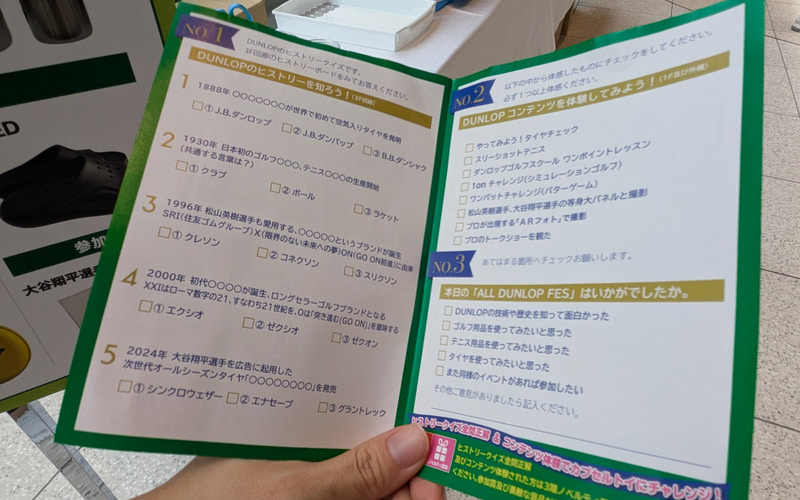 NO.1
DUNLOPのヒストリークイズです。
3F回廊のヒストリーボードをみてお答えください。
DUNLOPのヒストリーを知ろう！(3F回廊)
1 1888年 〇〇〇〇〇〇〇が世界で初めて空気入りタイヤを発明
① J.B.ダンロップ ② J.B.ダンパップ ③ B.B.ダンシャク
2 1930年 日本初のゴルフ〇〇〇、テニス〇〇〇の生産開始
(共通する言葉は？)
① クラブ ② ボール ③ ラケット
3 1996年 松山英樹選手も愛用する、〇〇〇〇〇というブランドが誕生
SRI(住友ゴムグループ)X(限界のない未来への夢)ON(GO ON前進)に由来
① クレソン ② コネクソン ③ スリクソン
4 2000年 初代〇〇〇〇が誕生、ロングセラーゴルフブランドとなる
XXIはローマ数字の21、すなわち21世紀を、Oは「突き進む(GO ON)」を意味する
① エクシオ ② ゼクシオ ③ ゼクオン
5 2024年 大谷翔平選手を広告に起用した
次世代オールシーズンタイヤ「〇〇〇〇〇〇〇〇」を発売
① シンクロウェザー ② エナセーブ ③ グラントレック
NO.2
以下の中から体感したものにチェックをしてください。
必ず1つ以上体感ください。
DUNLOP コンテンツを体験してみよう！(1F及び外構)
やってみよう！タイヤチェック
スリーショットテニス
ダンロップゴルフスクール ワンポイントレッスン
1on チャレンジ(シミュレーションゴルフ)
ワンパットチャレンジ(パターゲーム)
松山英樹選手、大谷翔平選手の等身大パネルと撮影
プロが出現する「ARフォト」で撮影
プロのトークショーを観た
NO.3
あてはまる箇所へチェックお願いします。
本日の「ALL DUNLOP FES」はいかがでしたか。
DUNLOPの技術や歴史を知って面白かった
ゴルフ用品を使ってみたいと思った
テニス用品を使ってみたいと思った
タイヤを使ってみたいと思った
また同様のイベントがあれば参加したい
その他に意見がありましたら記入ください。
ヒストリークイズ全問正解 & コンテンツ体験でカプセルトイにチャレンジ！
ヒストリークイズ全問正解
及びコンテンツ体験された方は3階ノベルティ
ください。参加賞及び素敵な景品が
ED
参加
大谷翔平選手